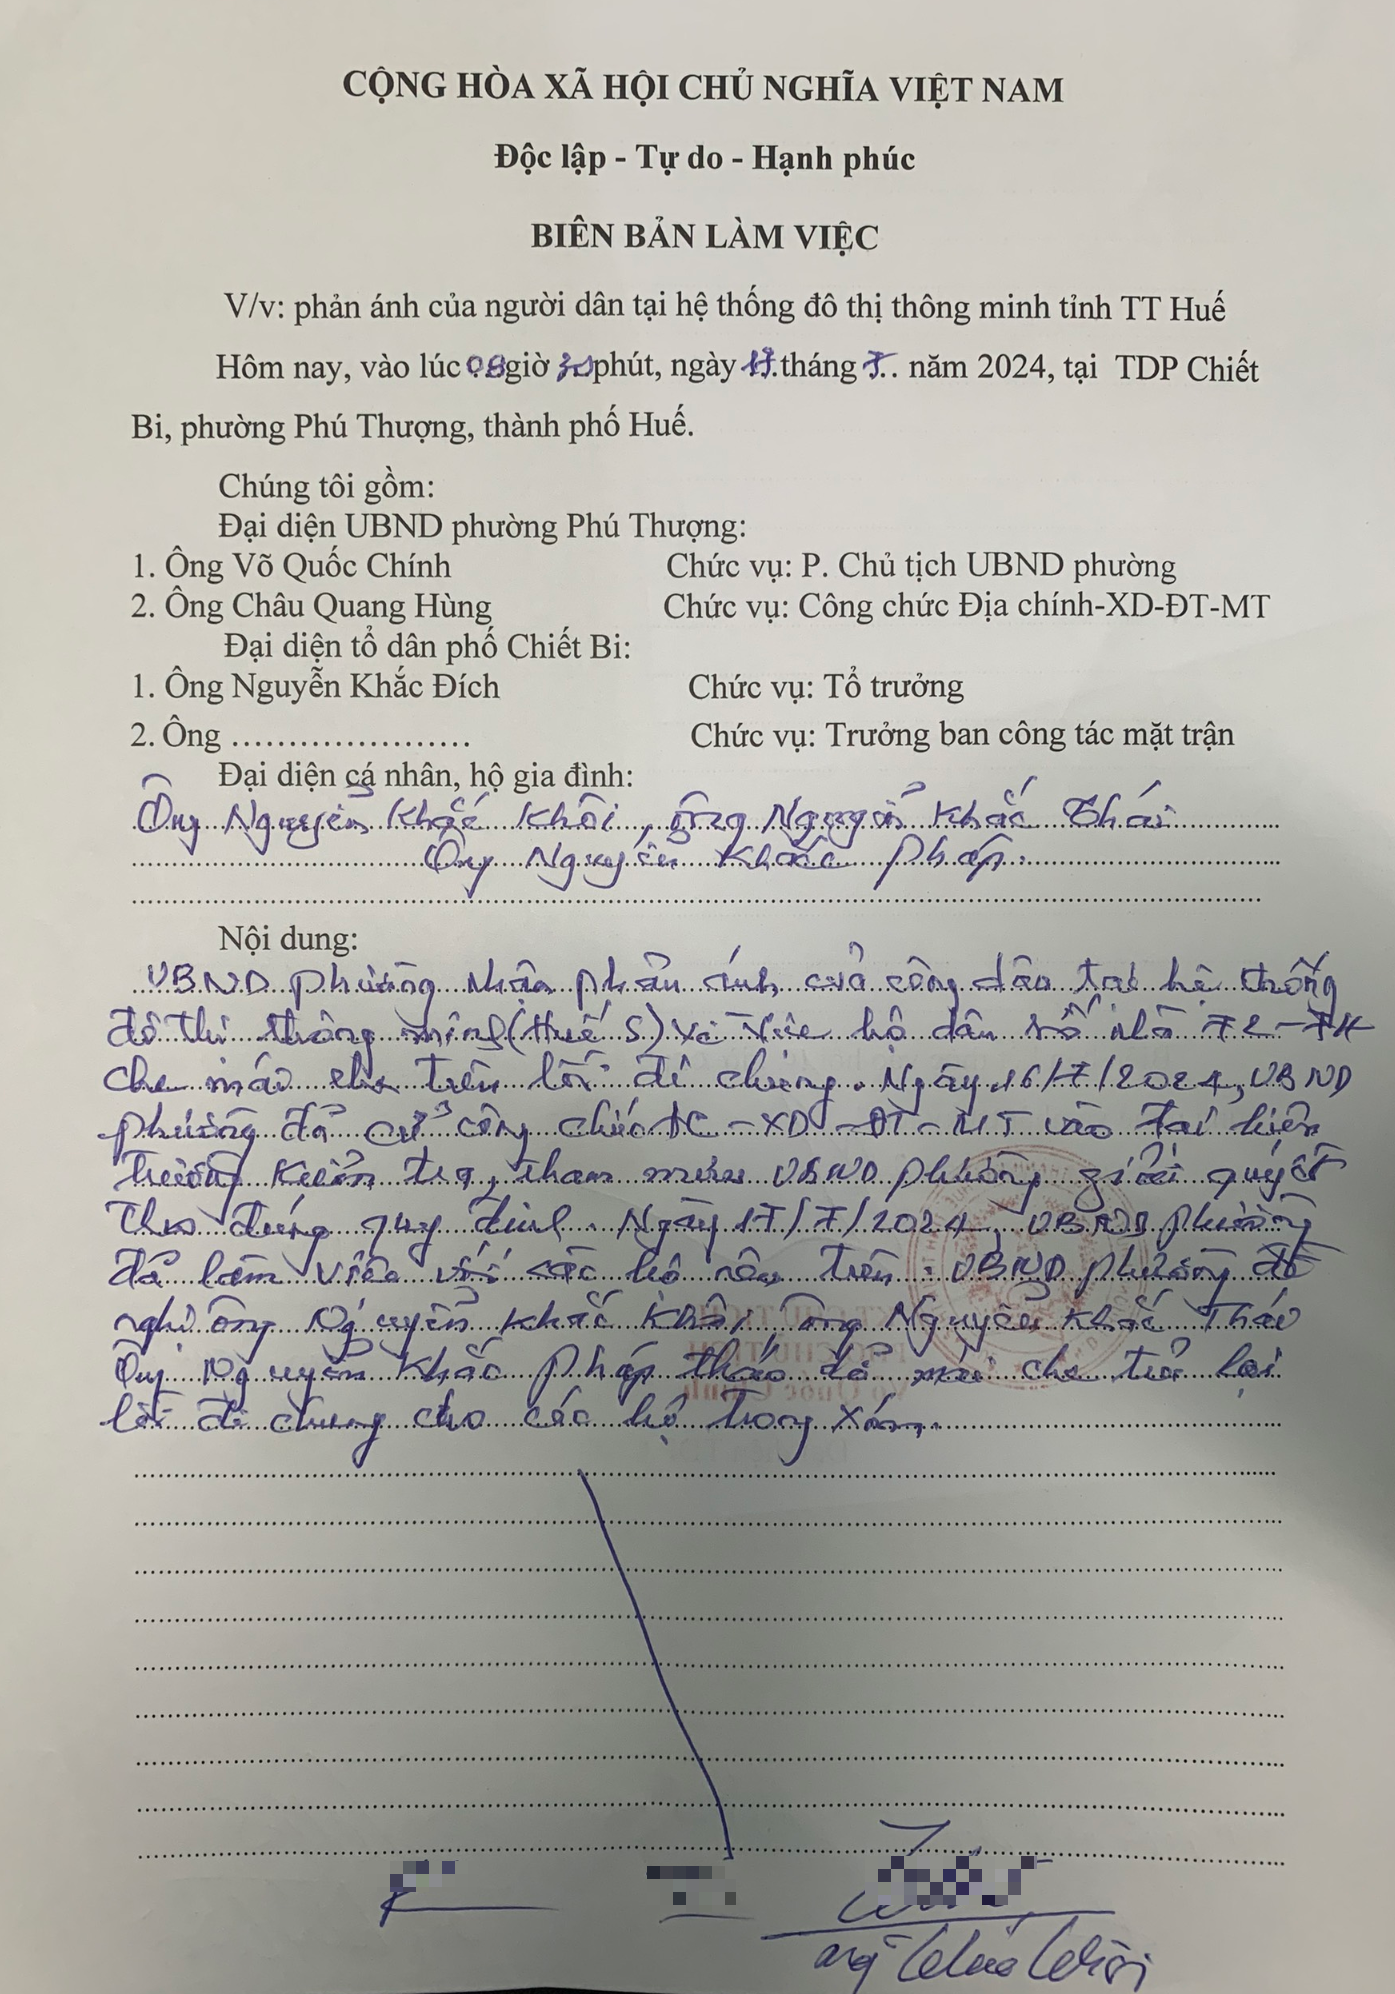 CỘNG HÒA XÃ HỘI CHỦ NGHĨA VIỆT NAM
Độc lập - Tự do - Hạnh phúc
BIÊN BẢN LÀM VIỆC
V/v: phản ánh của người dân tại hệ thống đô thị thông minh tỉnh TT Huế
Hôm nay, vào lúc 08 giờ 30 phút, ngày 17 tháng 7 năm 2024, tại TDP Chiết
Bi, phường Phú Thượng, thành phố Huế.
Chúng tôi gồm:
Đại diện UBND phường Phú Thượng:
1. Ông Võ Quốc Chính Chức vụ: P. Chủ tịch UBND phường
2. Ông Châu Quang Hùng Chức vụ: Công chức Địa chính-XD-ĐT-MT
Đại diện tổ dân phố Chiết Bi:
1. Ông Nguyễn Khắc Đích Chức vụ: Tổ trưởng
2. Ông ..................... Chức vụ: Trưởng ban công tác mặt trận
Đại diện cá nhân, hộ gia đình:
Ông Nguyễn Khắc Khôi, ông Nguyễn Khắc Thái
Ông Nguyễn Khắc Pháp.
Nội dung:
UBND phường nhận phản ánh của công dân tại hệ thống
đô thị thông minh (Huế S) về việc hộ dân số nhà 72-74
che mái che trên lối đi chung. Ngày 16/7/2024, UBND
phường đã cử công chức ĐC-XD-ĐT-MT vào tại hiện
trường kiểm tra, tham mưu UBND phường giải quyết
theo đúng quy định. Ngày 17/7/2024, UBND phường
đã làm việc với các hộ nêu trên. UBND phường đề
nghị ông Nguyễn Khắc Khôi, ông Nguyễn Khắc Thái
Ông Nguyễn Khắc Pháp tháo dỡ mái che trả lại
lối đi chung cho các hộ trong xóm.